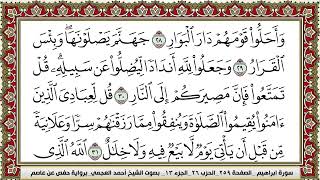 وَأَحَلُّوا۟ قَوْمَهُمْ دَارَ ٱلْبَوَارِ ٢٨ جَهَنَّمَ يَصْلَوْنَهَا ۖ وَبِئْسَ
ٱلْقَرَارُ ٢٩ وَجَعَلُوا۟ لِلَّهِ أَندَادًا لِّيُضِلُّوا۟ عَن سَبِيلِهِۦ ۗ قُلْ
تَمَتَّعُوا۟ فَإِنَّ مَصِيرَكُمْ إِلَى ٱلنَّارِ ٣٠ قُل لِّعِبَادِىَ ٱلَّذِينَ
ءَامَنُوا۟ يُقِيمُوا۟ ٱلصَّلَوٰةَ وَيُنفِقُوا۟ مِمَّا رَزَقْنَٰهُمْ سِرًّا وَعَلَانِيَةً
مِّن قَبْلِ أَن يَأْتِىَ يَوْمٌ لَّا بَيْعٌ فِيهِ وَلَا خِلَٰلٌ ٣١ ٱللَّهُ ٱلَّذِى
سورة إبراهيم _ الصفحة ٢٥٩ _ الحزب ٢٦ _ الجزء ١٣ _ بصوت الشيخ أحمد العجمي _ برواية حفص عن عاصم